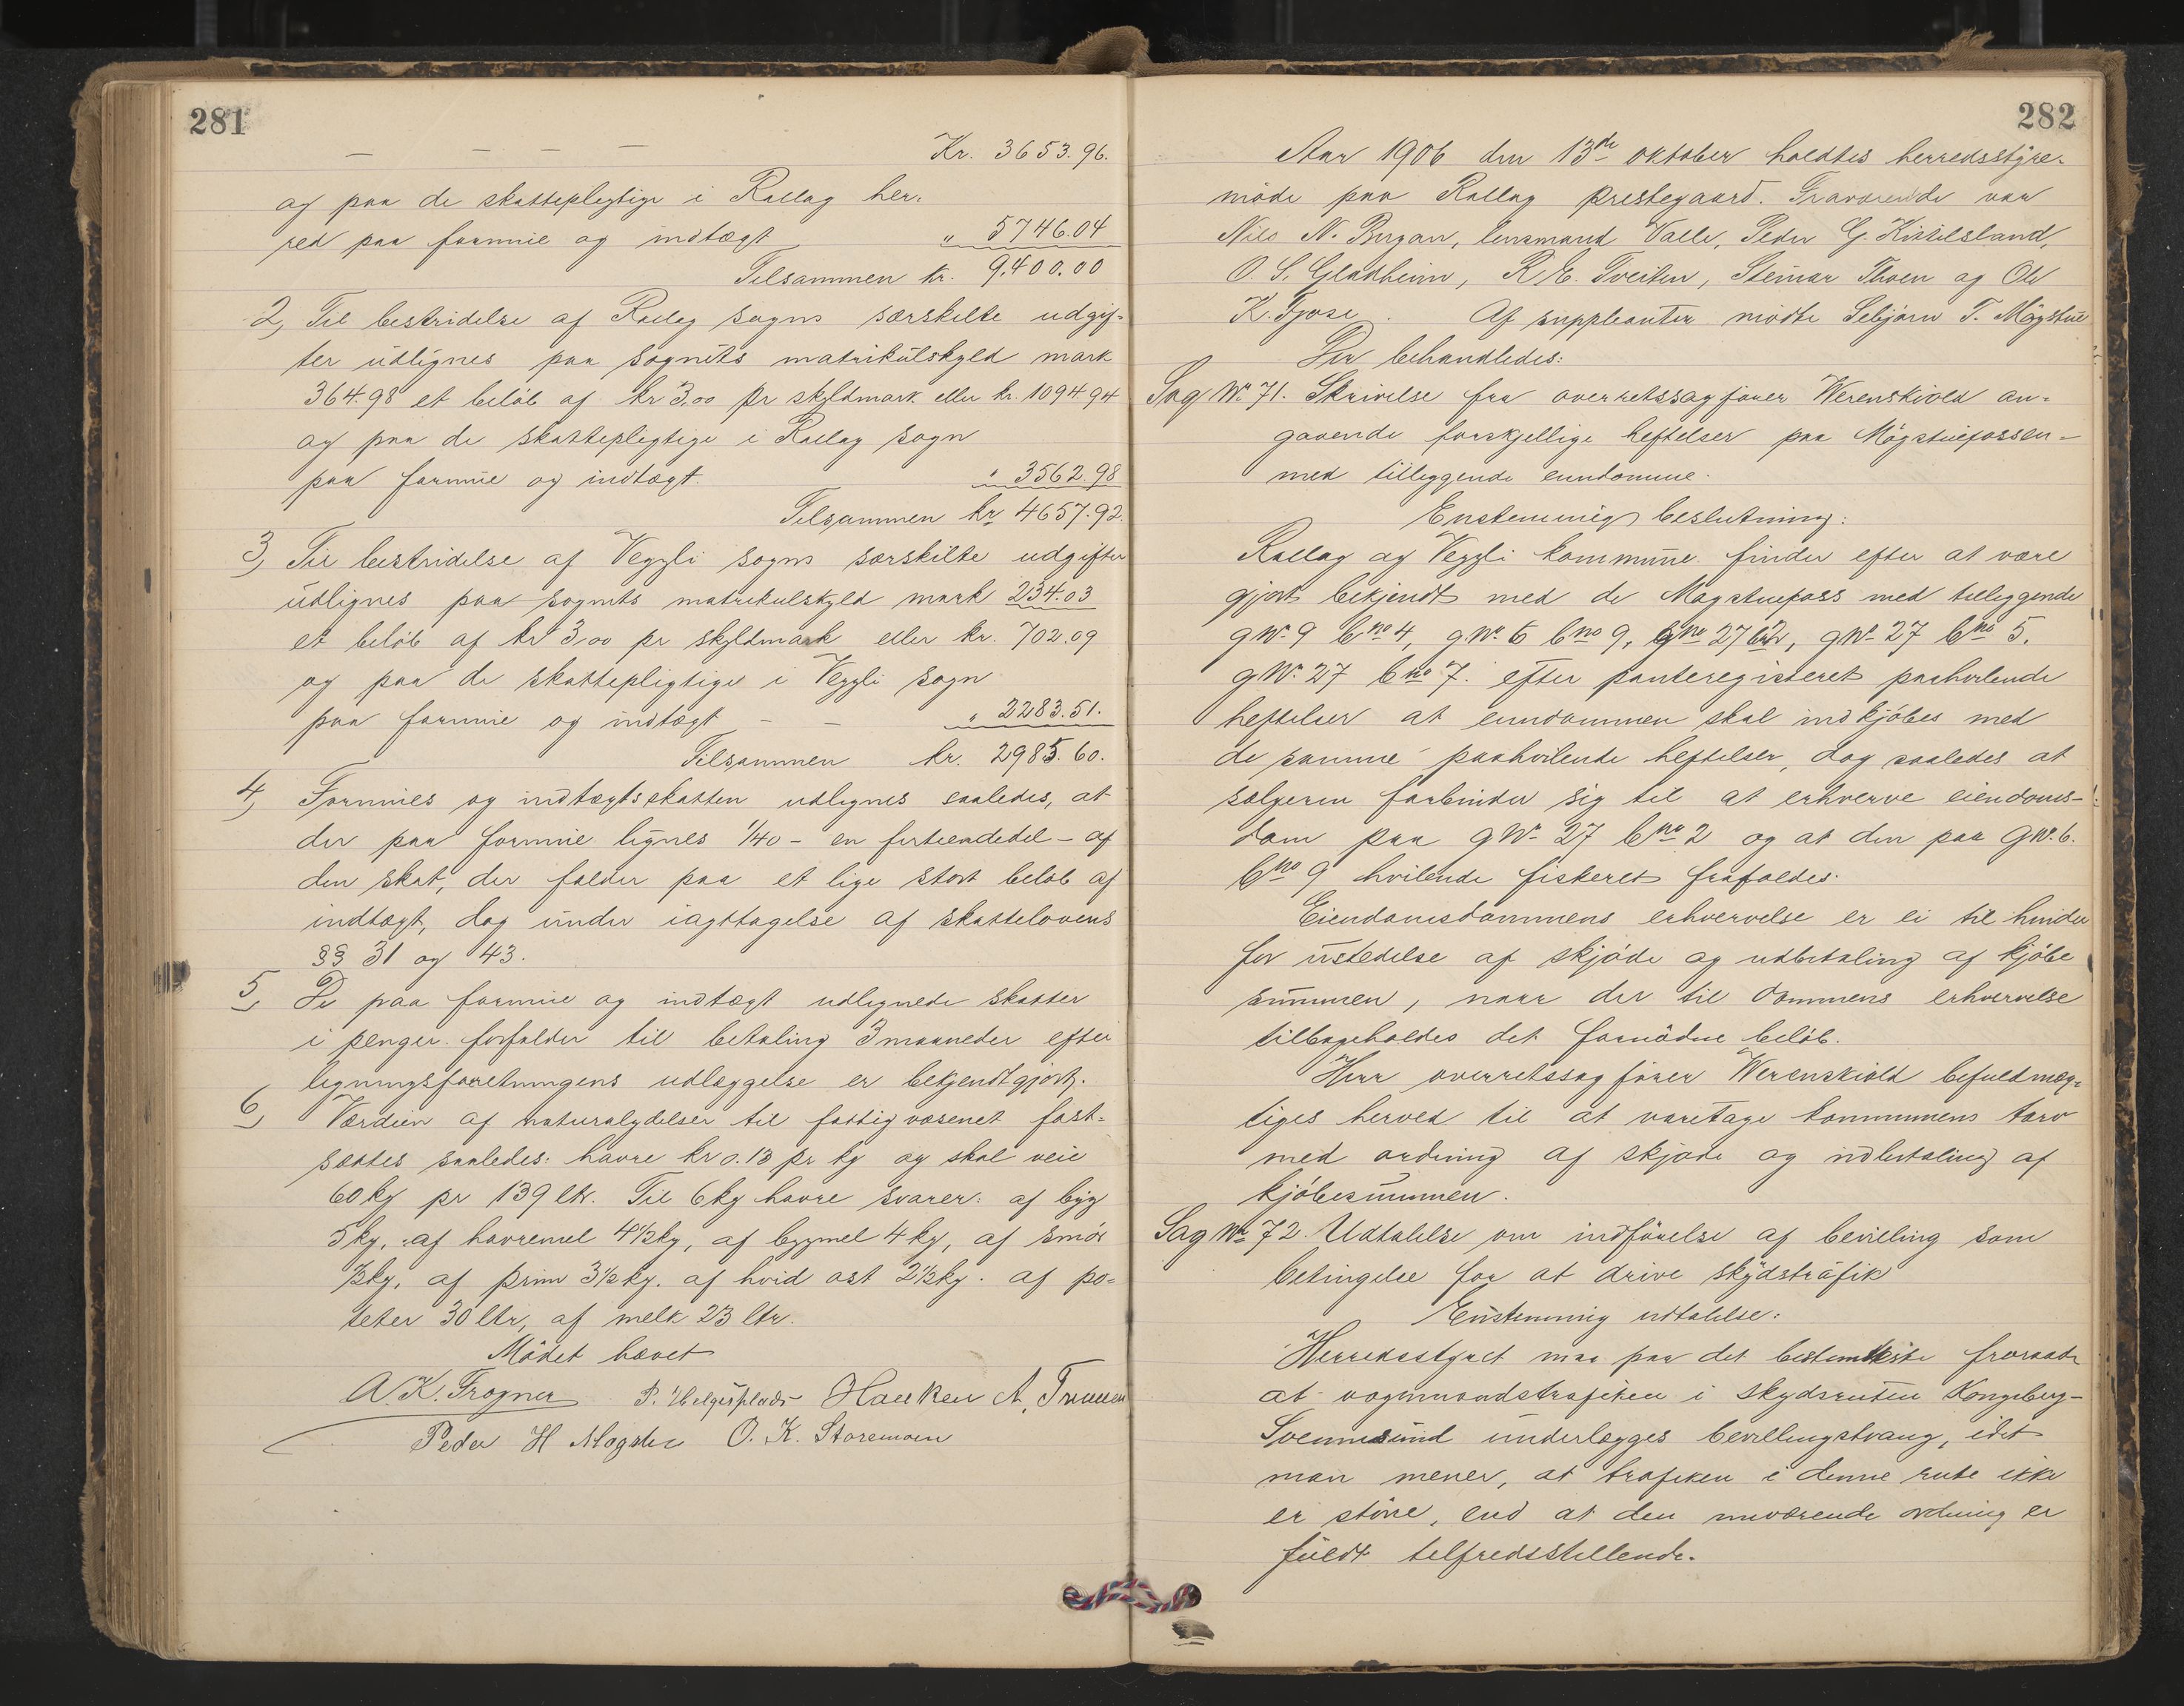 281
— — — — Kr. 3653.96.
og paa de skattepligtige i Rollag her-
red paa formue og indtægt " 5746.04
Tilsammen kr. 9.400.00
2, Til bestridelse af Rollag sogns særskilte udgif-
ter udlignes paa sognets matrikulskyld mark
364.98 et beløb af kr 3,00 pr skyldmark eller kr. 1094.94
og paa de skattepligtige i Rollag sogn
paa formue og indtægt. " 3562.98
Tilsammen kr 4657.92.
3, Til bestridelse af Veggli sogns særskilte udgifter
udlignes paa sognets matrikulskyld mark 234.03
et beløb af kr 3,00 pr skyldmark eller kr. 702.09
og paa de skattepligtige i Veggli sogn
paa formue og indtægt — — " 2283.51.
Tilsammen kr. 2985.60.
4, Formues og indtægtsskatten udlignes saaledes, at
der paa formue lignes 1/40 - en firtiendedel - af
den skat, der falder paa et lige stort beløb af
indtægt, dog under iagttagelse af skattelovens
§§ 31 og 43.
5, De paa formue og indtægt udlignede skatter
i penger forfalder til betaling 3 maaneder efter
ligningsforretningens udlæggelse er bekjendtgjort.
6, Værdien af naturalydelser til fattigvæsenet fast-
sættes saaledes: havre kr 0.13 pr kg og skal veie
60 kg pr 139 ltr. Til 6 kg havre svarer: af byg
5 kg, af havremel 4 1/2 kg, af bygmel 4 kg, af smør
1/2 kg, af prim 3 1/2 kg. af hvid ost 2 1/2 kg. af po-
teter 30 ltr, af melk 23 ltr.
Mødet hævet
A. K. Frogner P. Helgesplads Haaken A.
Peder H O. K. Storemoen
282
Aar 1906 den 13de oktober holdtes herredsstyre-
møde paa Rollag prestegaard. Fraværende var
Nils N. Bergan, lensmand Valle, Peder G. Kittelsland,
O. S. Gladheim, R. E. Tveiten, Steinar Thoen og Ole
K. Fjose. Af suppleanter mødte Sebjørn T. Mogstue
Der behandledes:
Sag No 71. Skrivelse fra overretssagfører Werenskiold an-
gaaende forskjellige heftelser paa Mogstuefossen
med tilliggende eiendomme.
Enstemmig beslutning:
Rollag og Veggli kommune finder efter at være
gjort bekjendt med de Mogstuefoss med tilliggende
g No 9 b no 4, g No 6 b no 9, g no 27 b no 2, g No 27 b no 5.
g No 27 b no 7. efter panteregisteret paahvilende
heftelser at eiendommen skal indkjøbes med
de samme paahvilende heftelser, dog saaledes at
sælgeren forbinder sig til at erhverve eiendoms-
dom paa g No 27 b no 2 og at den paa g No 6.
b no 9 hvilende fiskeret frafaldes.
Eiendomsdommens erhvervelse er ei til hinder
for utstedelse af skjøde og udbetaling af kjøbe
summen, naar der til dommens erhvervelse
tilbageholdes det fornødne beløb.
Herr overretssagfører Werenskiold befuldmæg-
tiges herved til at varetage kommunens tarv
med ordning af skjøde og udbetaling af
kjøbesummen.
Sag No 72. Udtalelse om indførelse af bevilling som
betingelse for at drive skydstrafik
Enstemmig udtalelse:
Herredsstyret maa paa det bestemteste fraraade
at vognmandstrafiken i skydsruten Kongsberg-
Svennesund underlægges bevillingstvang, idet
man mener, at trafiken i denne rute ikke
er større, end at den nuværende ordning er
fuldt tilfredsstillende.